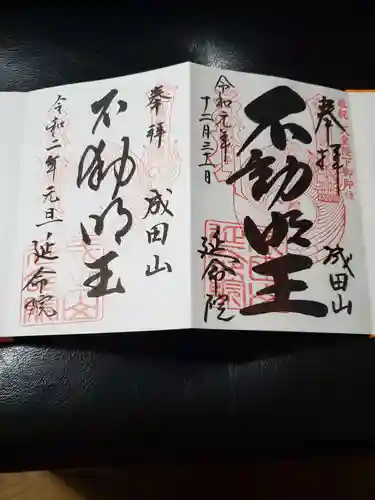 奉拝 成田山
不動明王
令和元年
十二月三十一日
延命院
奉拝 成田山
不動明王
令和二年 元旦
延命院